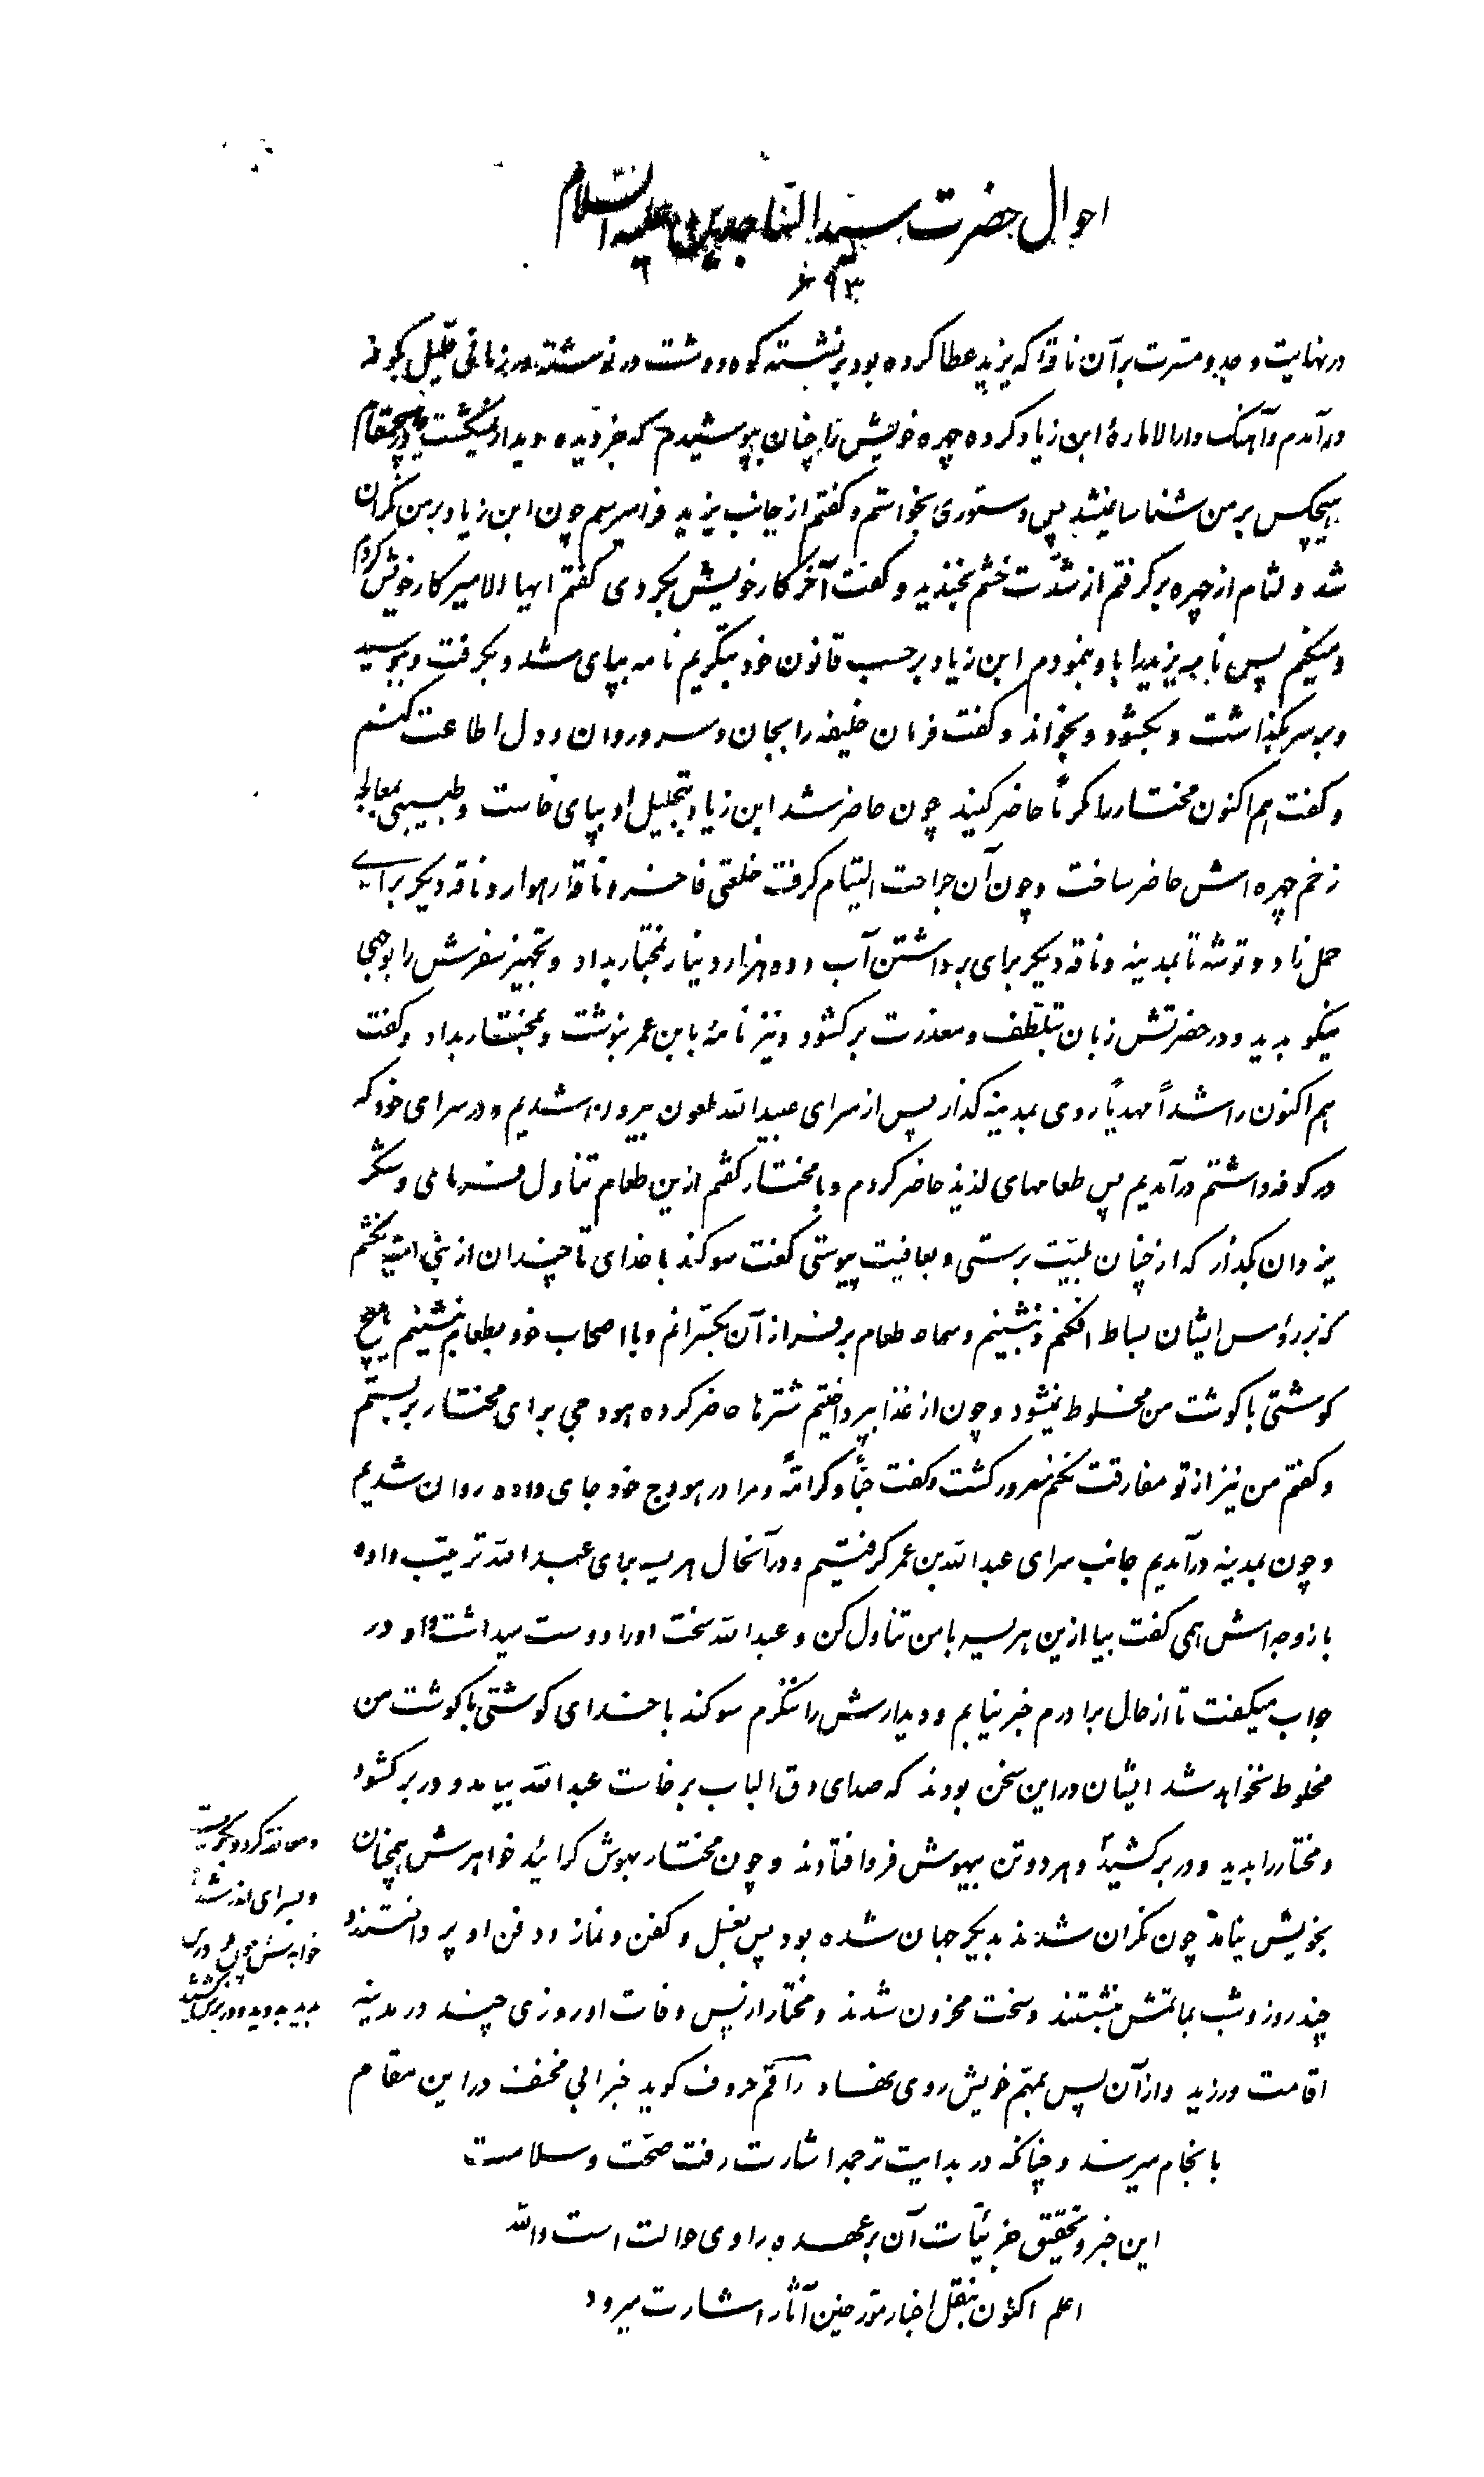 احوال حضرت سید الساجدین علیه السلام
۶۹۳
در نهایت وجد و مسرت بر آن ناقه که یزید عطا کرده بود بر نشسته کوه و دشت در نوشته در زمانی قلیل بکوفه
درآمدم و آهنک دارالامارهٔ ابن زیاد کرده چهره خویش را چنان بپوشیدم که جز دیده دیدار نمیکشت
هیچکس بر من شناسا نمیشد پس دستوری بخواستم و کفتم از جانب یزید فرا میرسم چون ابن زیاد بر من نکران
شد و لثام از چهره بر کرفتم از شدّت خشم بخندید و کفت آخر کار خویش بکردی کفتم ایها الامیر کار خویش کردم
و میکنم پس نامه یزید را باو بنمودم ابن زیاد بر حسب قانون خود بتکریم نامه بپای شد و بکرفت و ببوسید
و بر سر بکذاشت و بکشود و بخواند و کفت فرمان خلیفه را بجان و سر و روان و دل اطاعت کنم
و کفت هم اکنون مختار را مکرماً حاضر کنید چون حاضر شد ابن زیاد بتجلیل او بپای خاست و طبیبی بمعالجه
زخم چهره اش حاضر ساخت و چون آن جراحت التیام کرفت خلعتی فاخر و ناقه رهوار و ناقه دیکر برای
حمل زاد و توشه تا بمدینه و ناقه دیکر برای برداشتن آب و ده هزار دینار بمختار بداد و تجهیز سفرش را بوجهی
نیکو بدید و در حضرتش زبان بتلطّف و معذرت بر کشود و نیز نامهٔ بابن عمر بنوشت و بمختار بداد و کفت
هم اکنون راشداً مهدیاً روی بمدینه کذار پس از سرای عبیدالله ملعون بیرون شدیم و در سرای خود که
در کوفه داشتم درآمدیم پس طعامهای لذیذ حاضر کردم و با مختار کفتم ازین طعام تناول فرمای و شکر
یزدان بکذار که از چنان بلیّت برستی و بعافیت پیوستی کفت سوکند با خدای تا چندان از بنی امیّه نکشم
که بر رؤس ایشان بساط افکنم و بنشینم و سماط طعام بر فراز آن بکسترانم و با اصحاب خود بطعام بنشینم هیچ
کوشتی با کوشت من مخلوط نمیشود و چون از غذا بپرداختیم شترها حاضر کرده هودجی برای مختار بر بستم
و کفتم من نیز از تو مفارقت نکنم مسرور کشت و کفت حبّاً و کرامةً و مرا در هودج خود جای داده روان شدیم
و چون بمدینه درآمدیم جانب سرای عبدالله بن عمر کرفتیم و در آنحال هریسه برای عبدالله ترتیب داده
با زوجه اش همی کفت بیا ازین هریسه با من تناول کن و عبدالله سخت او را دوست میداشت و او در
جواب میکفت تا از حال برادرم خبر نیابم و دیدارش را ننکرم سوکند با خدای کوشتی با کوشت من
مخلوط نخواهد شد ایشان در این سخن بودند که صدای دق الباب بر خاست عبدالله بیامد و در بر کشود
و مختار را بدید و در بر کشید و هر دو تن بیهوش فرو افتادند و چون مختار بهوش کرائید خواهرش همچنان
بخویش نیامد چون نکران شدند بدیکر جهان شده بود پس بغسل و کفن و نماز و دفن او پرداختند و
چند روز و شب بماتمش بنشستند و سخت محزون شدند و مختار از پس وفات او روزی چند در مدینه
اقامت ورزید و از آن پس بمهم خویش روی نهاد راقم حروف کوید خبر ابی مخنف در این مقام
بانجام میرسد و چنانکه در بدایت ترجمه اشارت رفت صحّت و سلامت
این خبر و تحقیق جزئیّات آن بر عهده راوی حوالت است والله
اعلم اکنون بنقل اخبار مورخین آثار اشارت میرود
و معانقه کرد و بکریست
و بسرای اندر شد
خواهرش چون وی را
بدید بدوید و در برش کشید